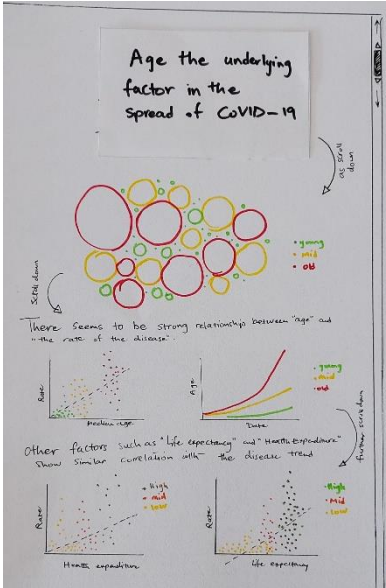 Age the underlying
factor in the
spread of COVID-19
as scroll
down
young
mid
old
Scroll down
There seems to be strong relationship between "age" and
"the rate of the disease".
Rate
Median-age
Age
Date
young
mid
old
further scroll down
Other factors such as "life expectancy" and "Health Expenditure"
show similar correlation with the disease trend
Rate
Health expenditure
High
mid
low
Rate
life expectancy
High
Mid
Low